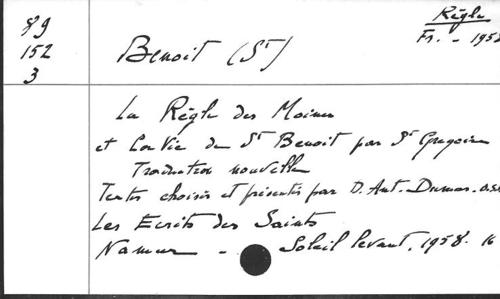 89
152
3
Règle
Fr. - 1958
Benoit (St)
La Règle des Moines
et La Vie de St Benoit par St Gregoire
Traduction nouvelle
Textes choisis et présentés par D. Ant. Dumas. o.s.b
Les Ecrits des Saints
Namur - Soleil levant, 1958. 16